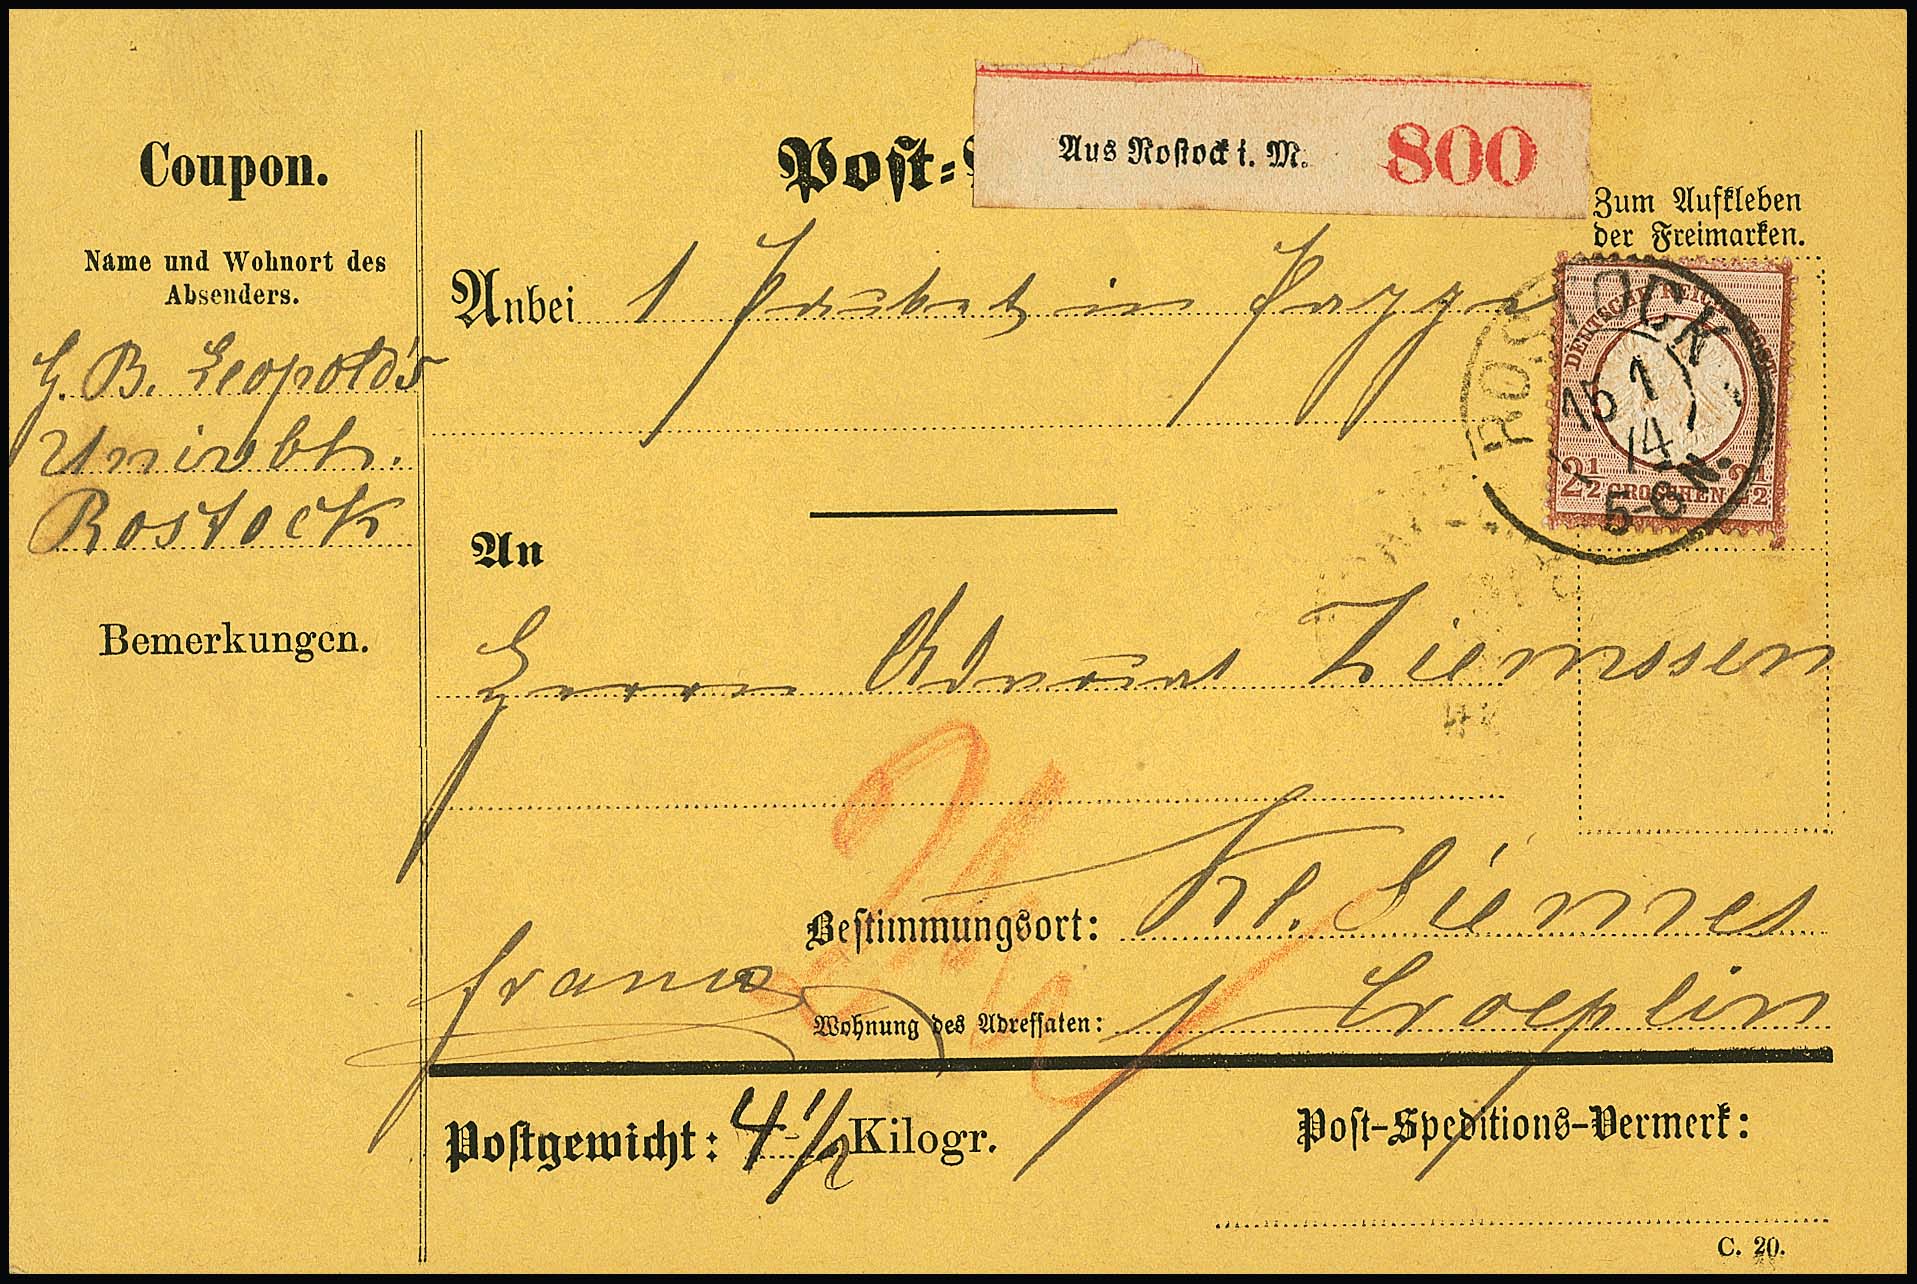 Coupon.
Name und Wohnort des
Absenders.
G. B. Leopold's
Univbh.
Rostock
Bemerkungen.
Post=
Aus Rostock i. M. 800
Zum Aufkleben
der Freimarken.
Anbei 1 Packet in Pappe
DEUTSCHE REICHS POST
2½ GROSCHEN 2½
ROSTOCK
15 1
74
5-6 N.
An
Herrn Advocat Ziemssen
Bestimmungsort: Kl. Siemes
franco
Wohnung des Adressaten: p Croeplin
Postgewicht: 4 1/2 Kilogr.
Post-Speditions-Vermerk:
C. 20.